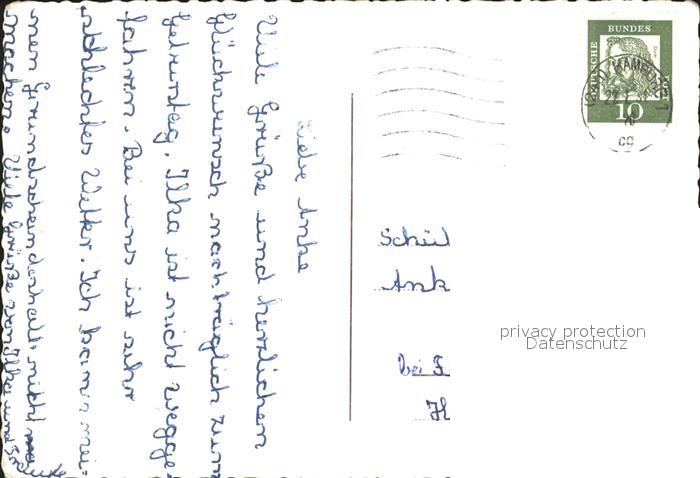 Liebe Anke
Viele Grüße und herzlichen
Glückwunsch nachträglich zum
Geburstag. Ilka ist nicht wegge-
fahren. Bei uns ist sehr
schlechtes Wetter. Ich kann mei=
nen Grundschein deshalb nicht
machen. Viele Grüße von Ilka und
Schül
Ank
bei F
H
DEUTSCHE BUNDESPOST
10
HAMBURG 1
cg
privacy protection
Datenschutz